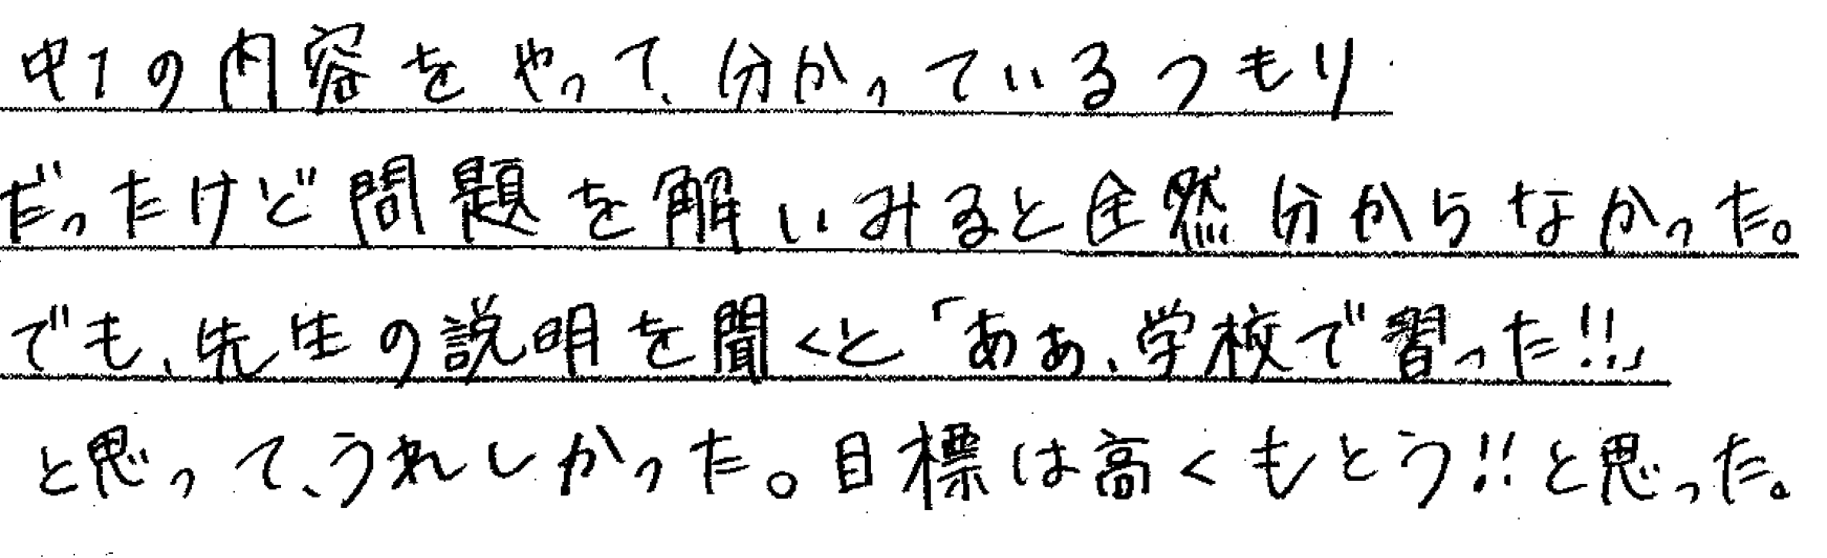 中1の内容をやって、分かっているつもり
だったけど問題を解いみると全然分からなかった。
でも、先生の説明を聞くと「ああ、学校で習った!!」
と思って、うれしかった。目標は高くもとう!!と思った。